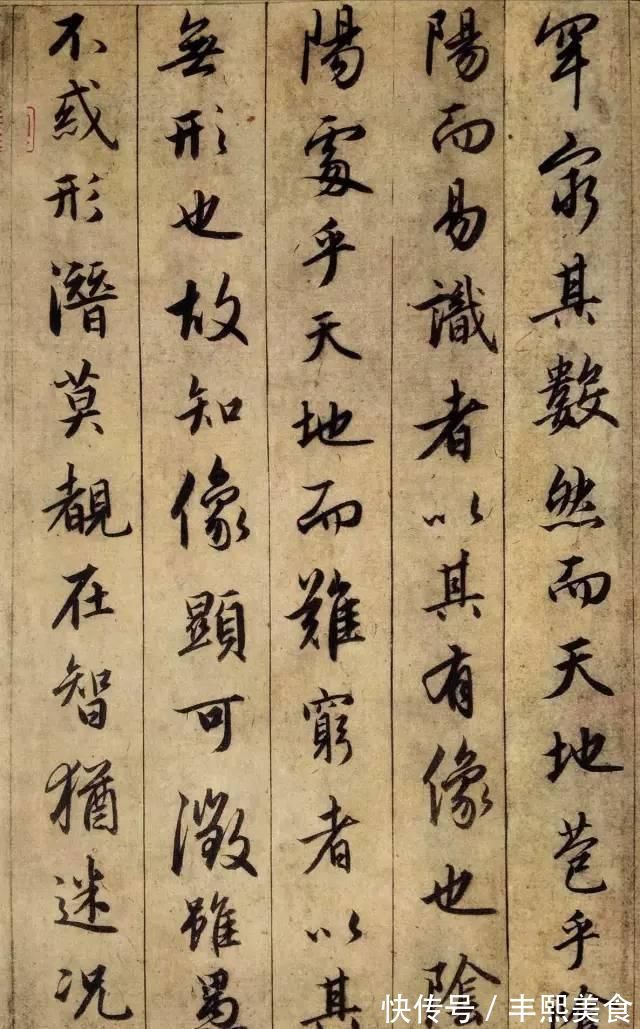 罕窮其數然而天地苞乎陰
陽而易識者以其有像也陰
陽處乎天地而難窮者以其
無形也故知像顯可徵雖愚
不惑形潛莫覩在智猶迷况
快传号／丰熙美食